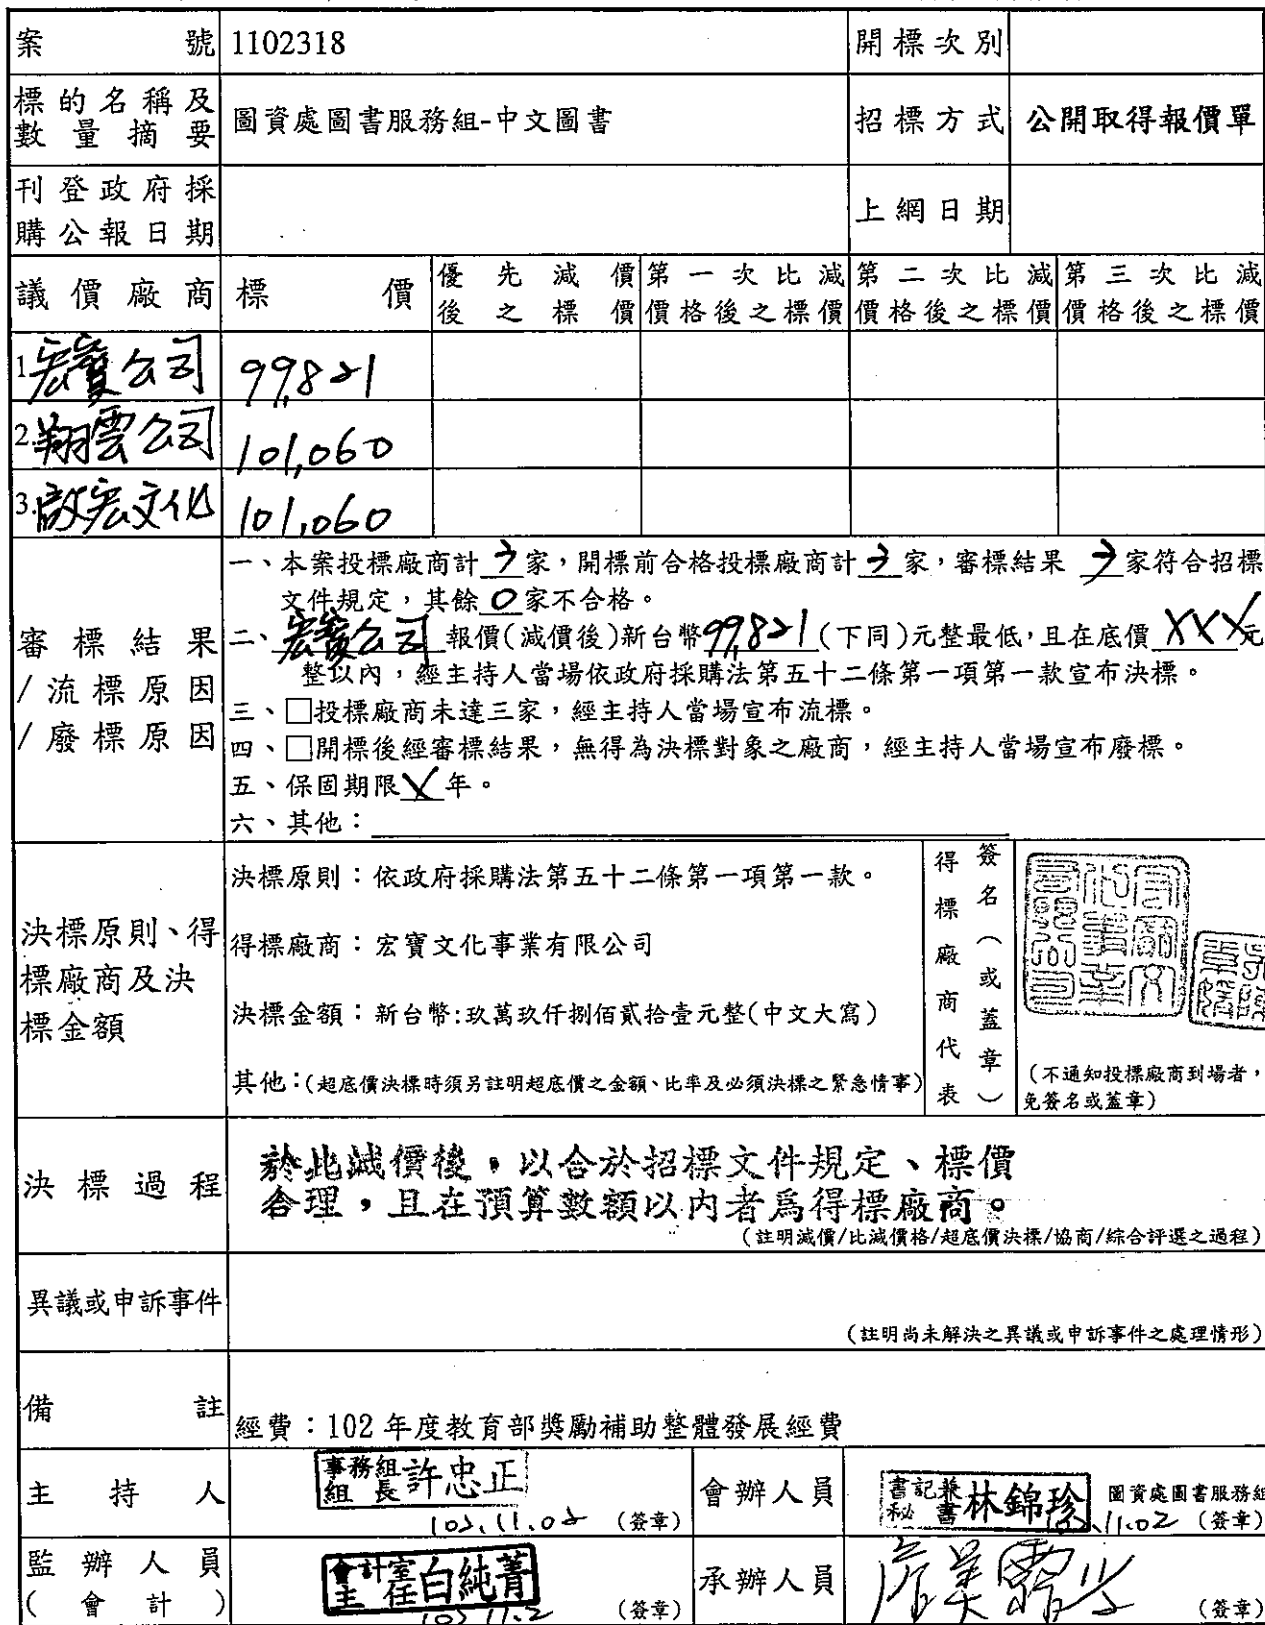 案號 1102318 開標次別
標的名稱及數量摘要 圖資處圖書服務組-中文圖書 招標方式 公開取得報價單
刊登政府採購公報日期 上網日期
議價廠商 標價 優先減價後之標價 第一次比減價格後之標價 第二次比減價格後之標價 第三次比減價格後之標價
1.宏寶公司 99,821
2.翔雲公司 101,060
3.啟宏文化 101,060
審標結果/流標原因/廢標原因
一、本案投標廠商計3家，開標前合格投標廠商計3家，審標結果 3家符合招標
文件規定，其餘0家不合格。
二、宏寶公司 報價(減價後)新台幣99,821(下同)元整最低，且在底價XXX元
整以內，經主持人當場依政府採購法第五十二條第一項第一款宣布決標。
三、□投標廠商未達三家，經主持人當場宣布流標。
四、□開標後經審標結果，無得為決標對象之廠商，經主持人當場宣布廢標。
五、保固期限X年。
六、其他：
決標原則、得標廠商及決標金額
決標原則：依政府採購法第五十二條第一項第一款。
得標廠商：宏寶文化事業有限公司
決標金額：新台幣:玖萬玖仟捌佰貳拾壹元整(中文大寫)
其他：(超底價決標時須另註明超底價之金額、比率及必須決標之緊急情事)
得標廠商代表
簽名（或蓋章）
(不通知投標廠商到場者，
免簽名或蓋章)
決標過程
於比減價後，以合於招標文件規定、標價
合理，且在預算數額以內者為得標廠商。
(註明減價/比減價格/超底價決標/協商/綜合評選之過程)
異議或申訴事件
(註明尚未解決之異議或申訴事件之處理情形)
備註 經費：102年度教育部獎勵補助整體發展經費
主持人 事務組組長 許忠正 102.11.02 (簽章) 會辦人員 書記兼秘書 林錦珍 圖資處圖書服務組 102.11.02 (簽章)
監辦人員(會計) 會計室主任 白純菁 102 11.2 (簽章) 承辦人員 (簽章)